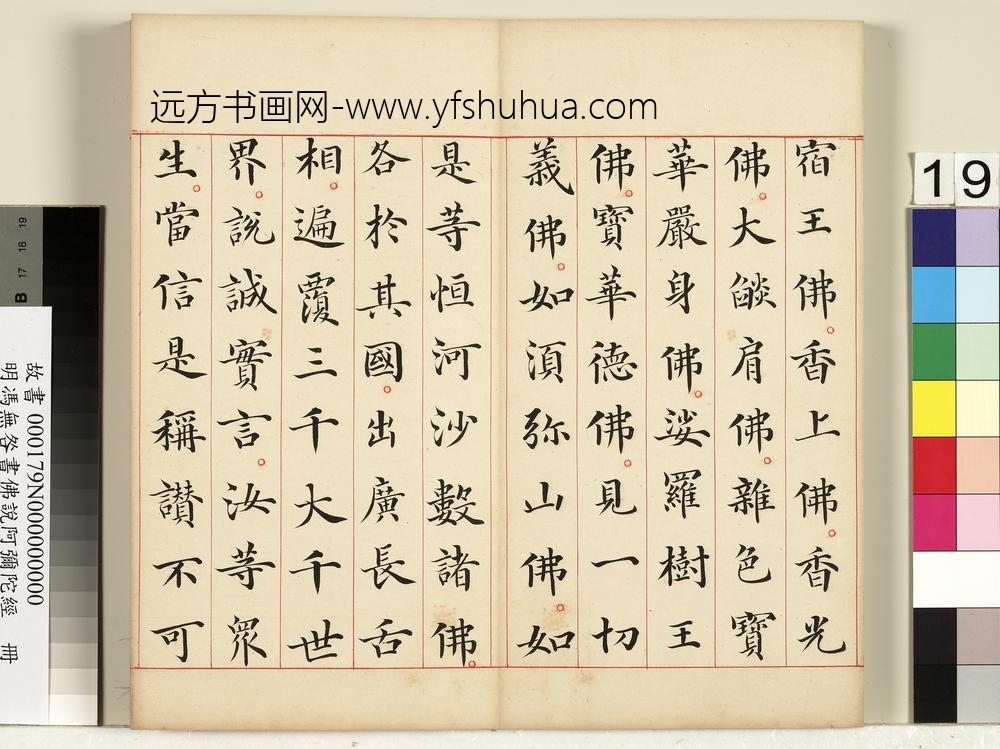 远方书画网-www.yfshuhua.com
宿王佛。香上佛。香光
佛。大燄肩佛。雜色寶
華嚴身佛。娑羅樹王
佛。寶華德佛。見一切
義佛。如須弥山佛。如
是等恒河沙數諸佛。
各於其國。出廣長舌
相。遍覆三千大千世
界。説誠實言。汝等眾
生。當信是稱讃不可
19
故書 000179N000000000
明馮無咎書佛說阿彌陀經 冊
B 17 18 19